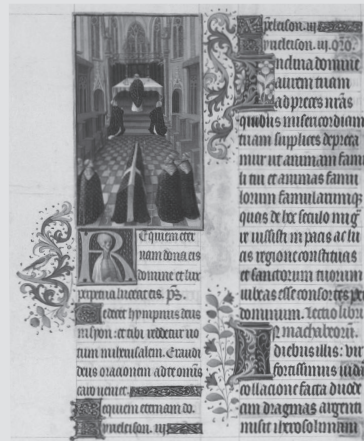 Requiem eter
nam dona eis
domine et lux
perpetua luceat eis. ps.
Te decet hympnus deus
in syon : et tibi reddetur uo
tum in iherusalem. Exaudi
deus orationem ad te omnis
caro ueniet.
Requiem eternam do.
Kyrieleison. iij
Xpeleison. iij
Kyrieleison. iij. oro.
Inclina domine
aurem tuam
ad preces nr̃as
quibus misericordiam
tuam supplices depreca
mur ut animam famu
li tui et animas famu
lorum famularumq
quas de hoc seculo mig
re iussisti in pacis ac lu
cis regione constituas
et sanctorum tuorum
iubeas esse consortes per
dominum. Lectio libri
machabeorũ.
In diebus illis : vir
fortissimus iudas
collatione facta duode
cim dragmas argenti
misit iherosolimam